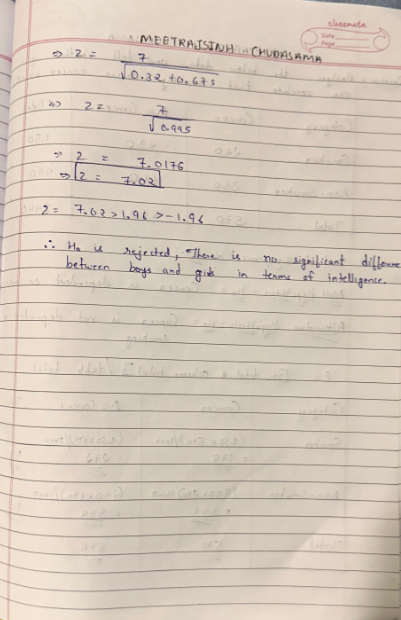 classmate
Date
Page
MEETRAJSINH CHUDASAMA
⇒ z = 7 / √0.32 + 0.675
⇒ z = 7 / √0.995
⇒ z = 7.0176
⇒ z = 7.02
z = 7.02 > 1.96 > -1.96
∴ H₀ is rejected, There is no significant difference
between boys and girls in terms of intelligence.